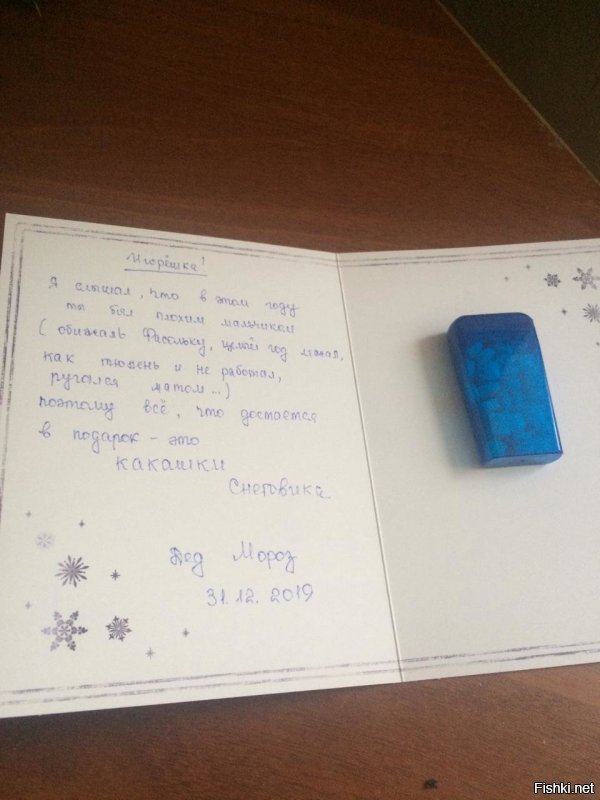 Игорёшка!
Я слышал, что в этом году
ты был плохим мальчиком
(обижаль Фасольку, целый год лежал,
как тюлень и не работал,
ругался матом...)
поэтому всё, что достаётся
в подарок - это
какашки
Снеговика
Дед Мороз
31.12.2019
Fishki.net